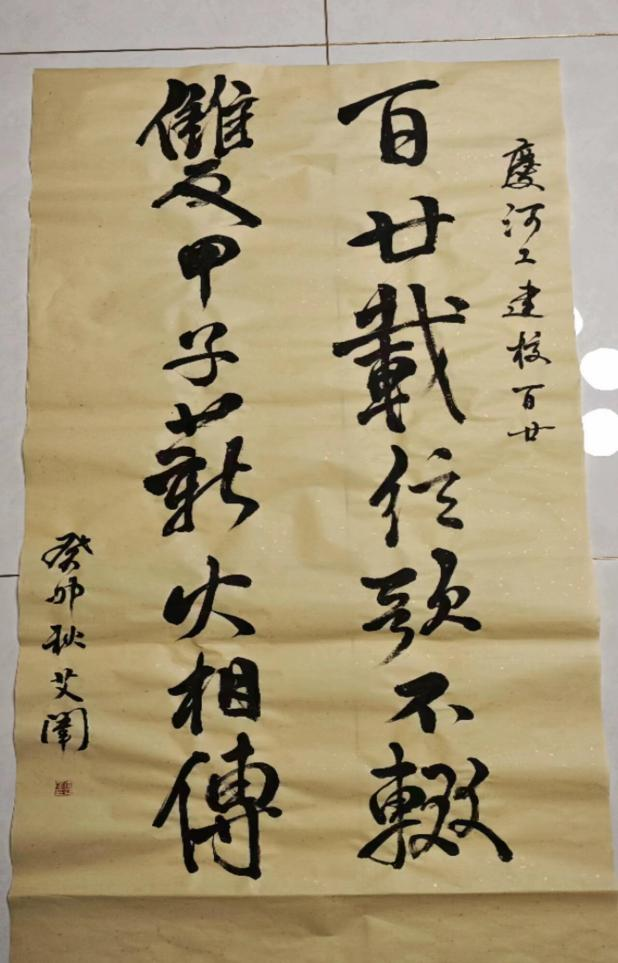 慶河工建校百廿
百廿載弦歌不輟
雙甲子薪火相傳
癸卯秋艾